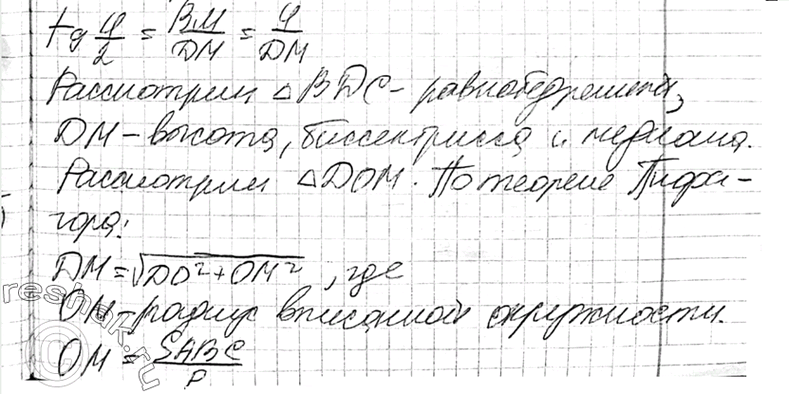 tg φ/2 = BM/DM = 4/DM
Рассмотрим △BDC - равнобедренный,
DM - высота, биссектриса и медиана.
Рассмотрим △DOM. По теореме Пифа-
гора:
DM = √DO²+OM², где
OM - радиус вписанной окружности.
OM = SABC/P
reshak.ru